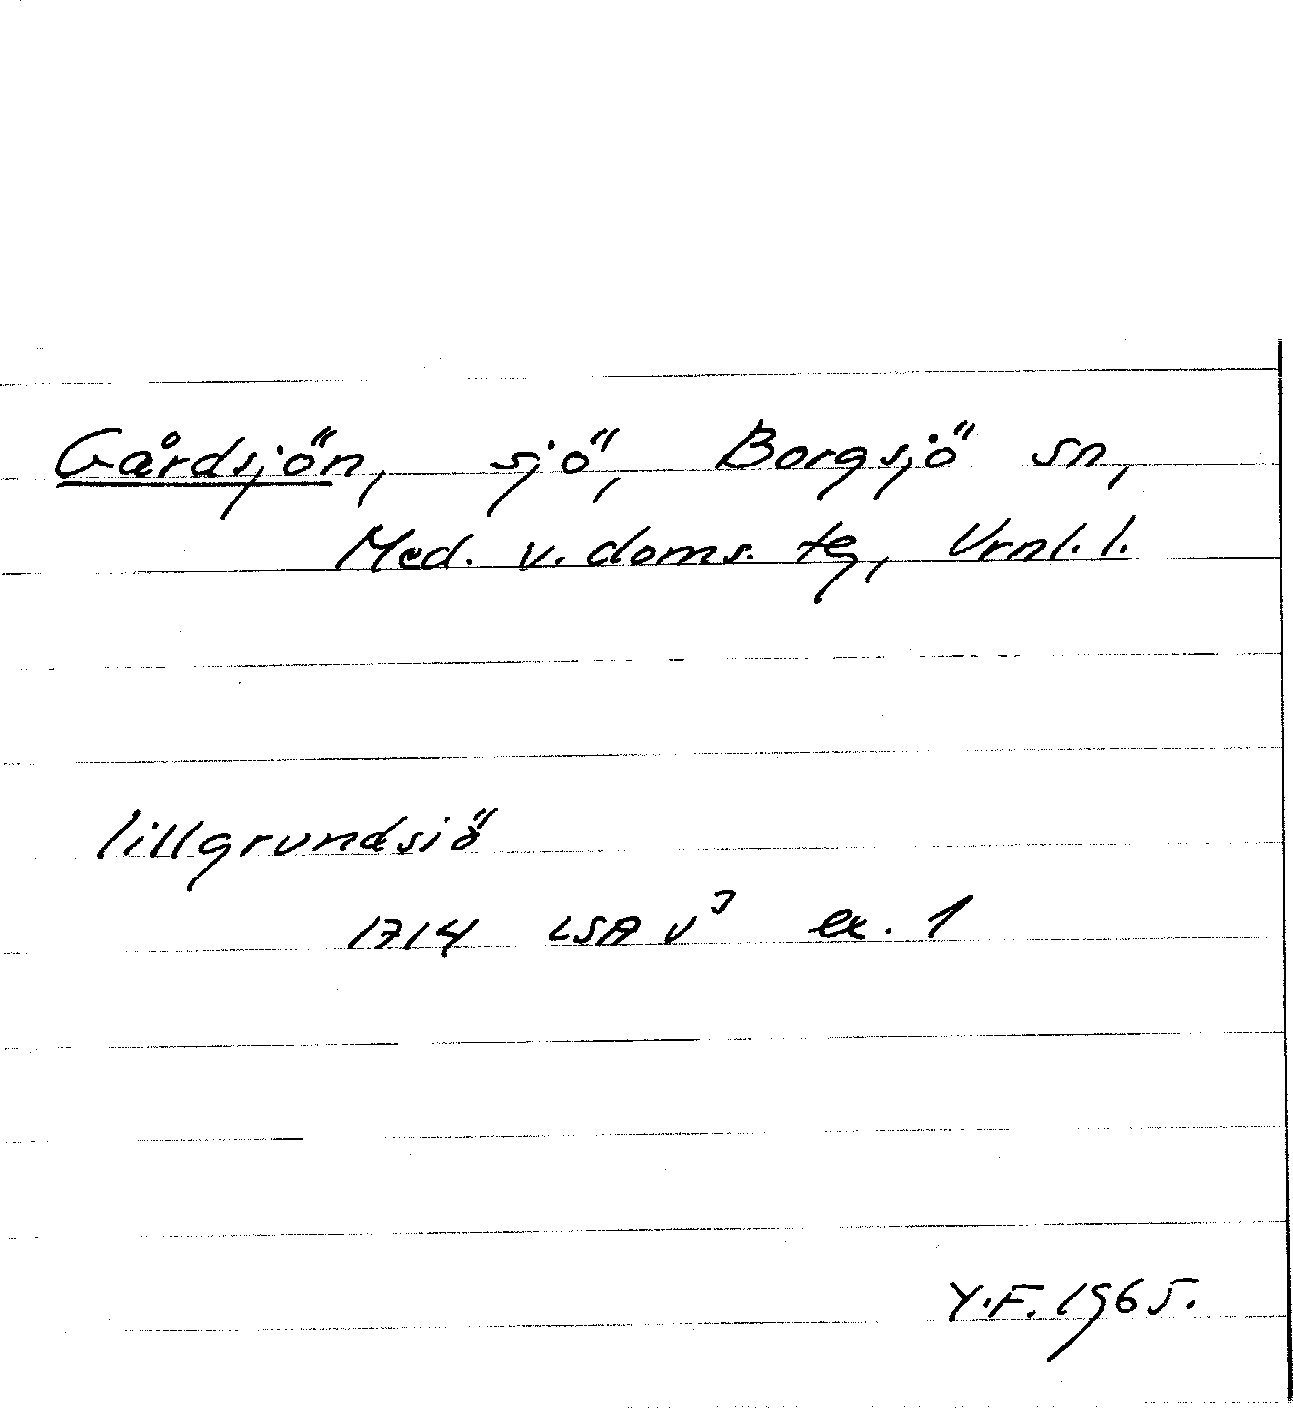 Gårdsjön, sjö, Borgsjö sn,
Med. v. doms. tg, Vrnl. l.
lillgrundsiö
1714 LSA V³ ex. 1
Y.F. 1965.